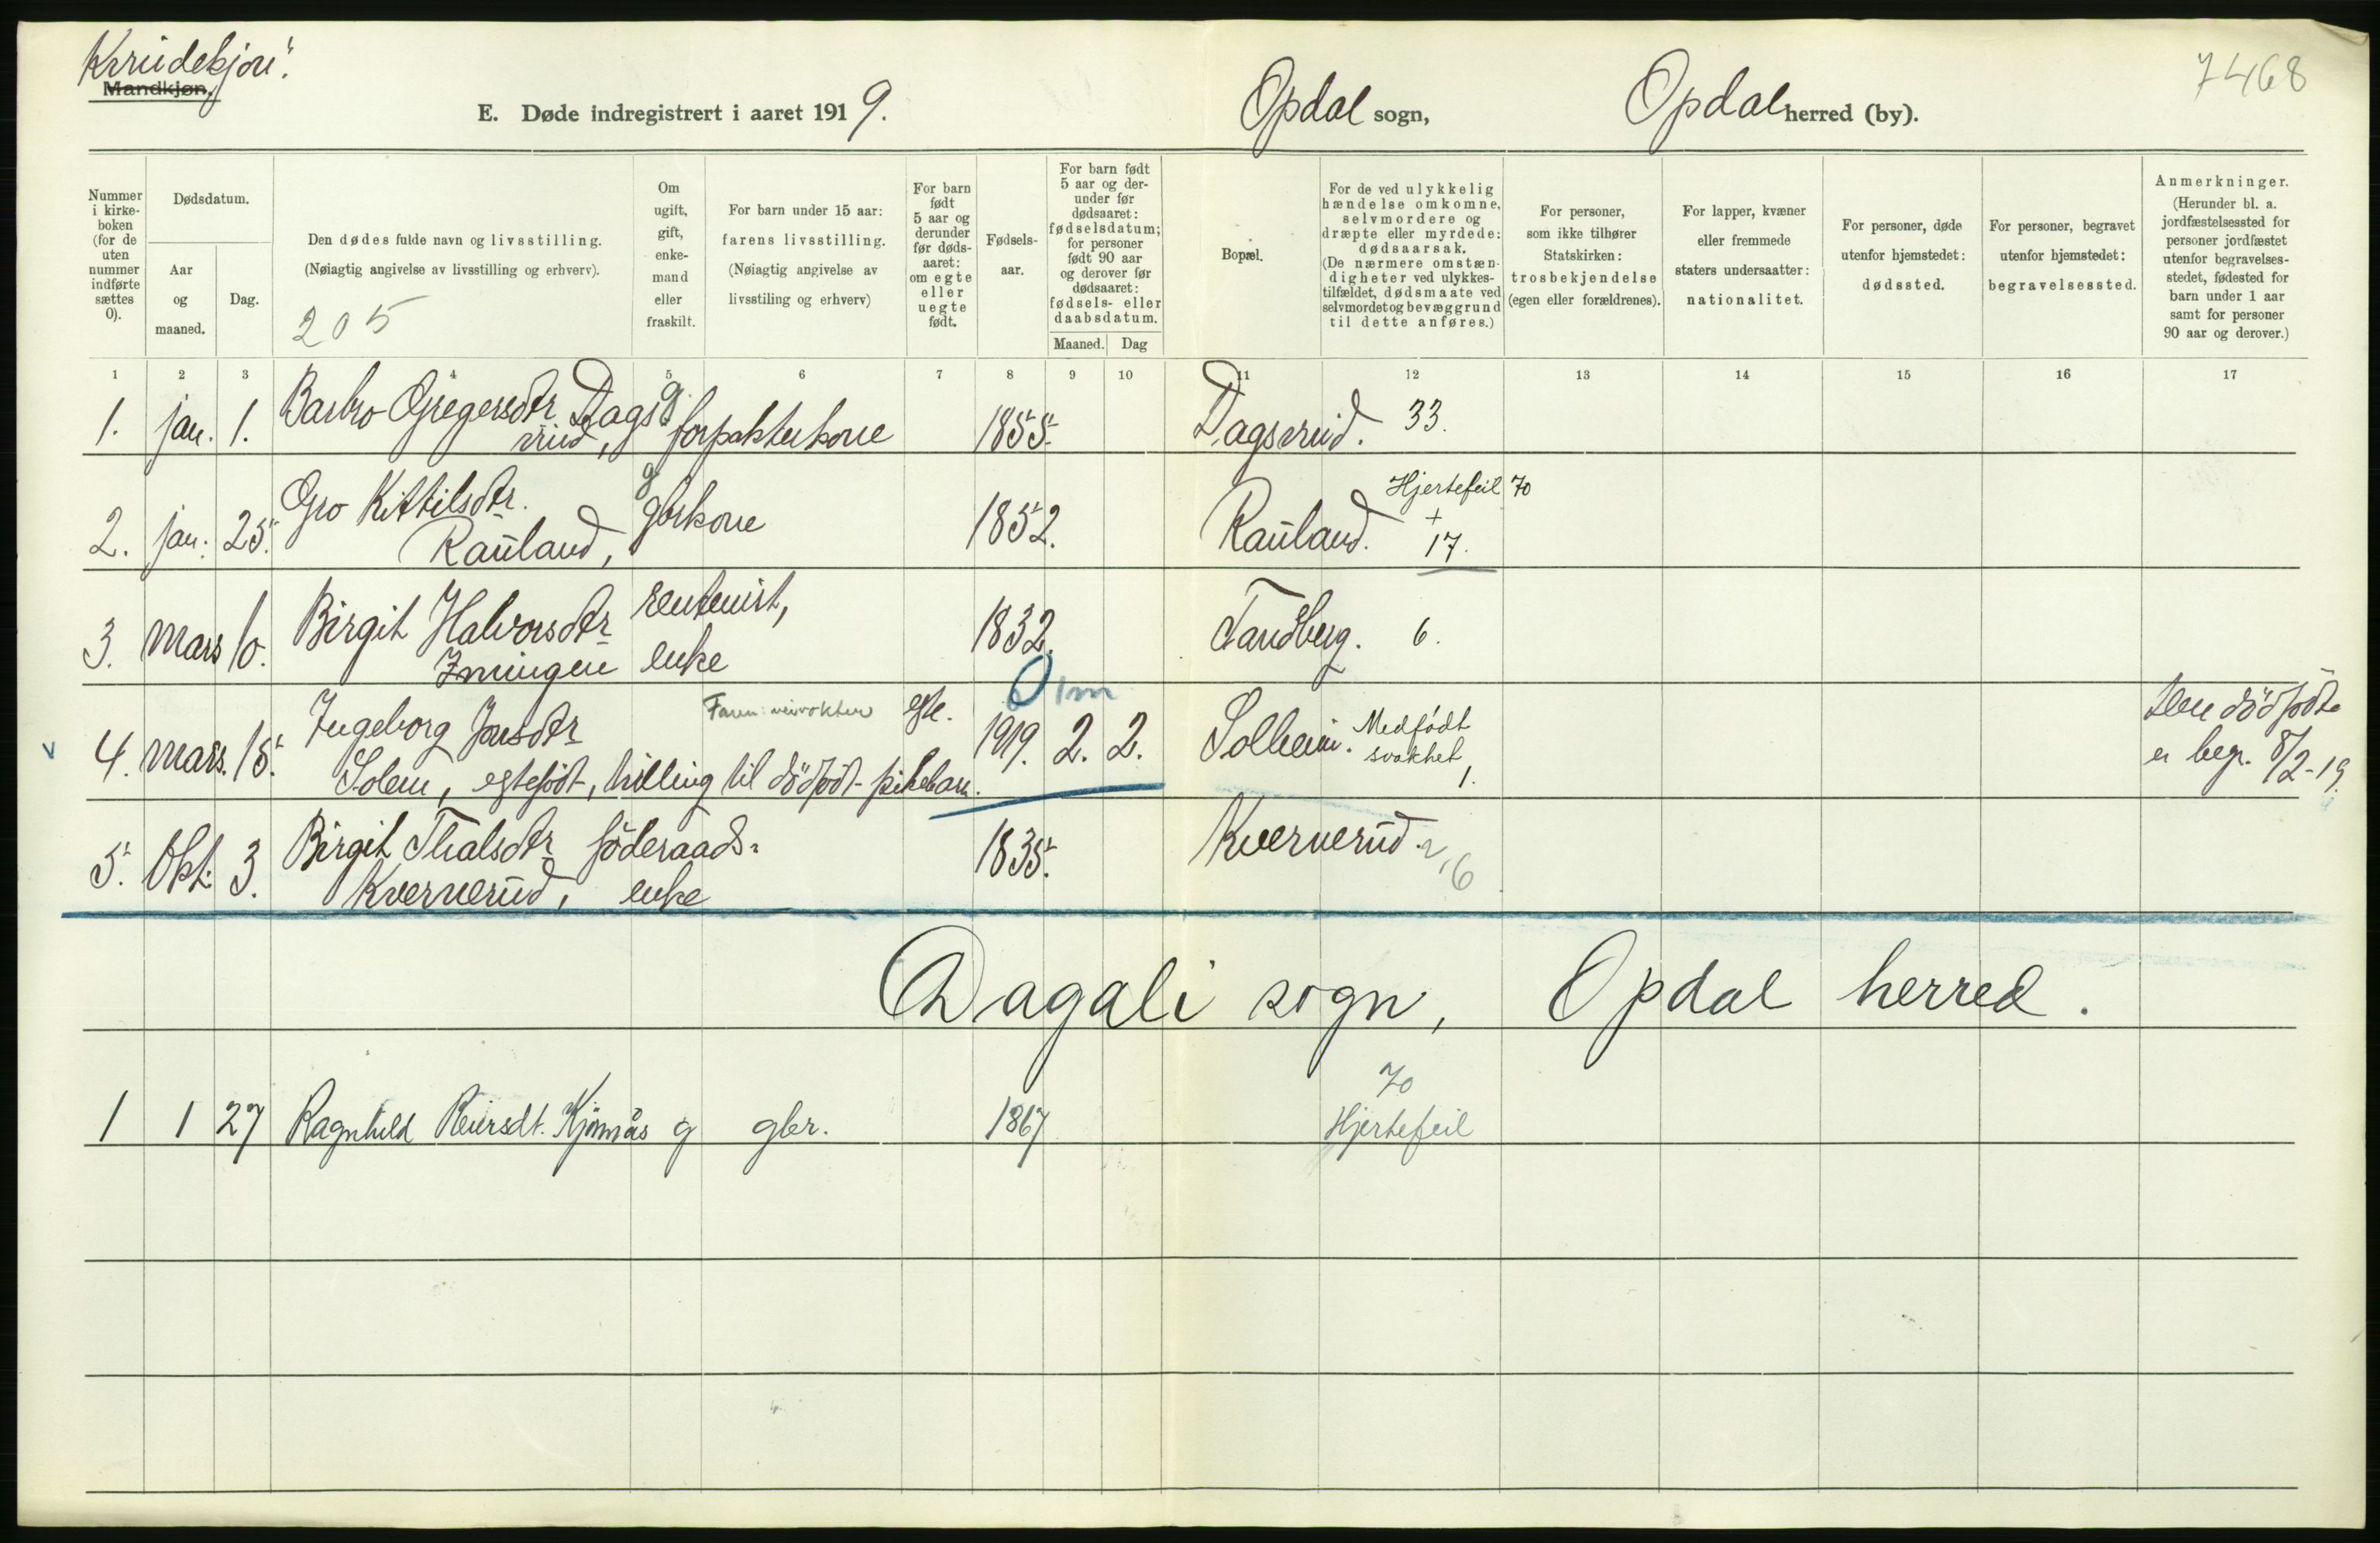 Kvindekjøn.
Mandkjøn.
E. Døde indregistrert i aaret 1919.
Opdal sogn,
Opdal herred (by).
7468
Nummer i kirke-boken (for de uten nummer indførte sættes 0).
Dødsdatum.
Aar og maaned.
Dag.
Den dødes fulde navn og livsstilling.
(Nøiagtig angivelse av livsstilling og erhverv).
205
Om ugift, gift, enke-mand eller fraskilt.
For barn under 15 aar: farens livsstilling.
(Nøiagtig angivelse av livsstiling og erhverv)
For barn født 5 aar og derunder før døds-aaret: om egte eller uegte født.
Fødsels-aar.
For barn født 5 aar og der-under før dødsaaret: fødselsdatum; for personer født 90 aar og derover før dødsaaret: fødsels- eller daabsdatum.
Maaned. Dag
Bopæl.
For de ved ulykkelig hændelse omkomne, selvmordere og dræpte eller myrdede: dødsaarsak.
(De nærmere omstæn-digheter ved ulykkes-tilfældet, dødsmaate ved selvmordet og bevæggrund til dette anføres.)
For personer, som ikke tilhører Statskirken: trosbekjendelse (egen eller forældrenes).
For lapper, kvæner eller fremmede staters undersaatter: nationalitet.
For personer, døde utenfor hjemstedet: dødssted.
For personer, begravet utenfor hjemstedet: begravelsessted.
Anmerkninger.
(Herunder bl. a. jordfæstelsessted for personer jordfæstet utenfor begravelses-stedet, fødested for barn under 1 aar samt for personer 90 aar og derover.)
1 2 3 4 5 6 7 8 9 10 11 12 13 14 15 16 17
1. jan. 1. Barbro Gregersdtr Dags g.
vrud, forpakterkone 1855. Dagsvrud. 33.
2. jan. 25. Gro Kittilsdtr. g
Rauland, gbrkone 1852. Rauland. Hjertefeil 70
+
17.
3. Mars 10. Birgit Halvorsdtr rentenist,
Imingen enke 1832. Tandberg. 6.
0 1m
4. Mars. 15. Ingeborg Jonsdtr Faren: veivokter egte. 1919. 2. 2. Solheim. Medfødt svakhet 1. Den dödfödte
Solem, egtefödt, tvilling til dödfödt pikebarn. er begr. 8/2-19.
5. Okt. 3. Birgit Thalsdtr föderaads-
Kvernerud, enke 1835. Kvernerud. 26
Dagali sogn, Opdal herred.
70
1 1 27 Ragnhild Reiersdt. Kjönnås g gbr. 1867 Hjertefeil